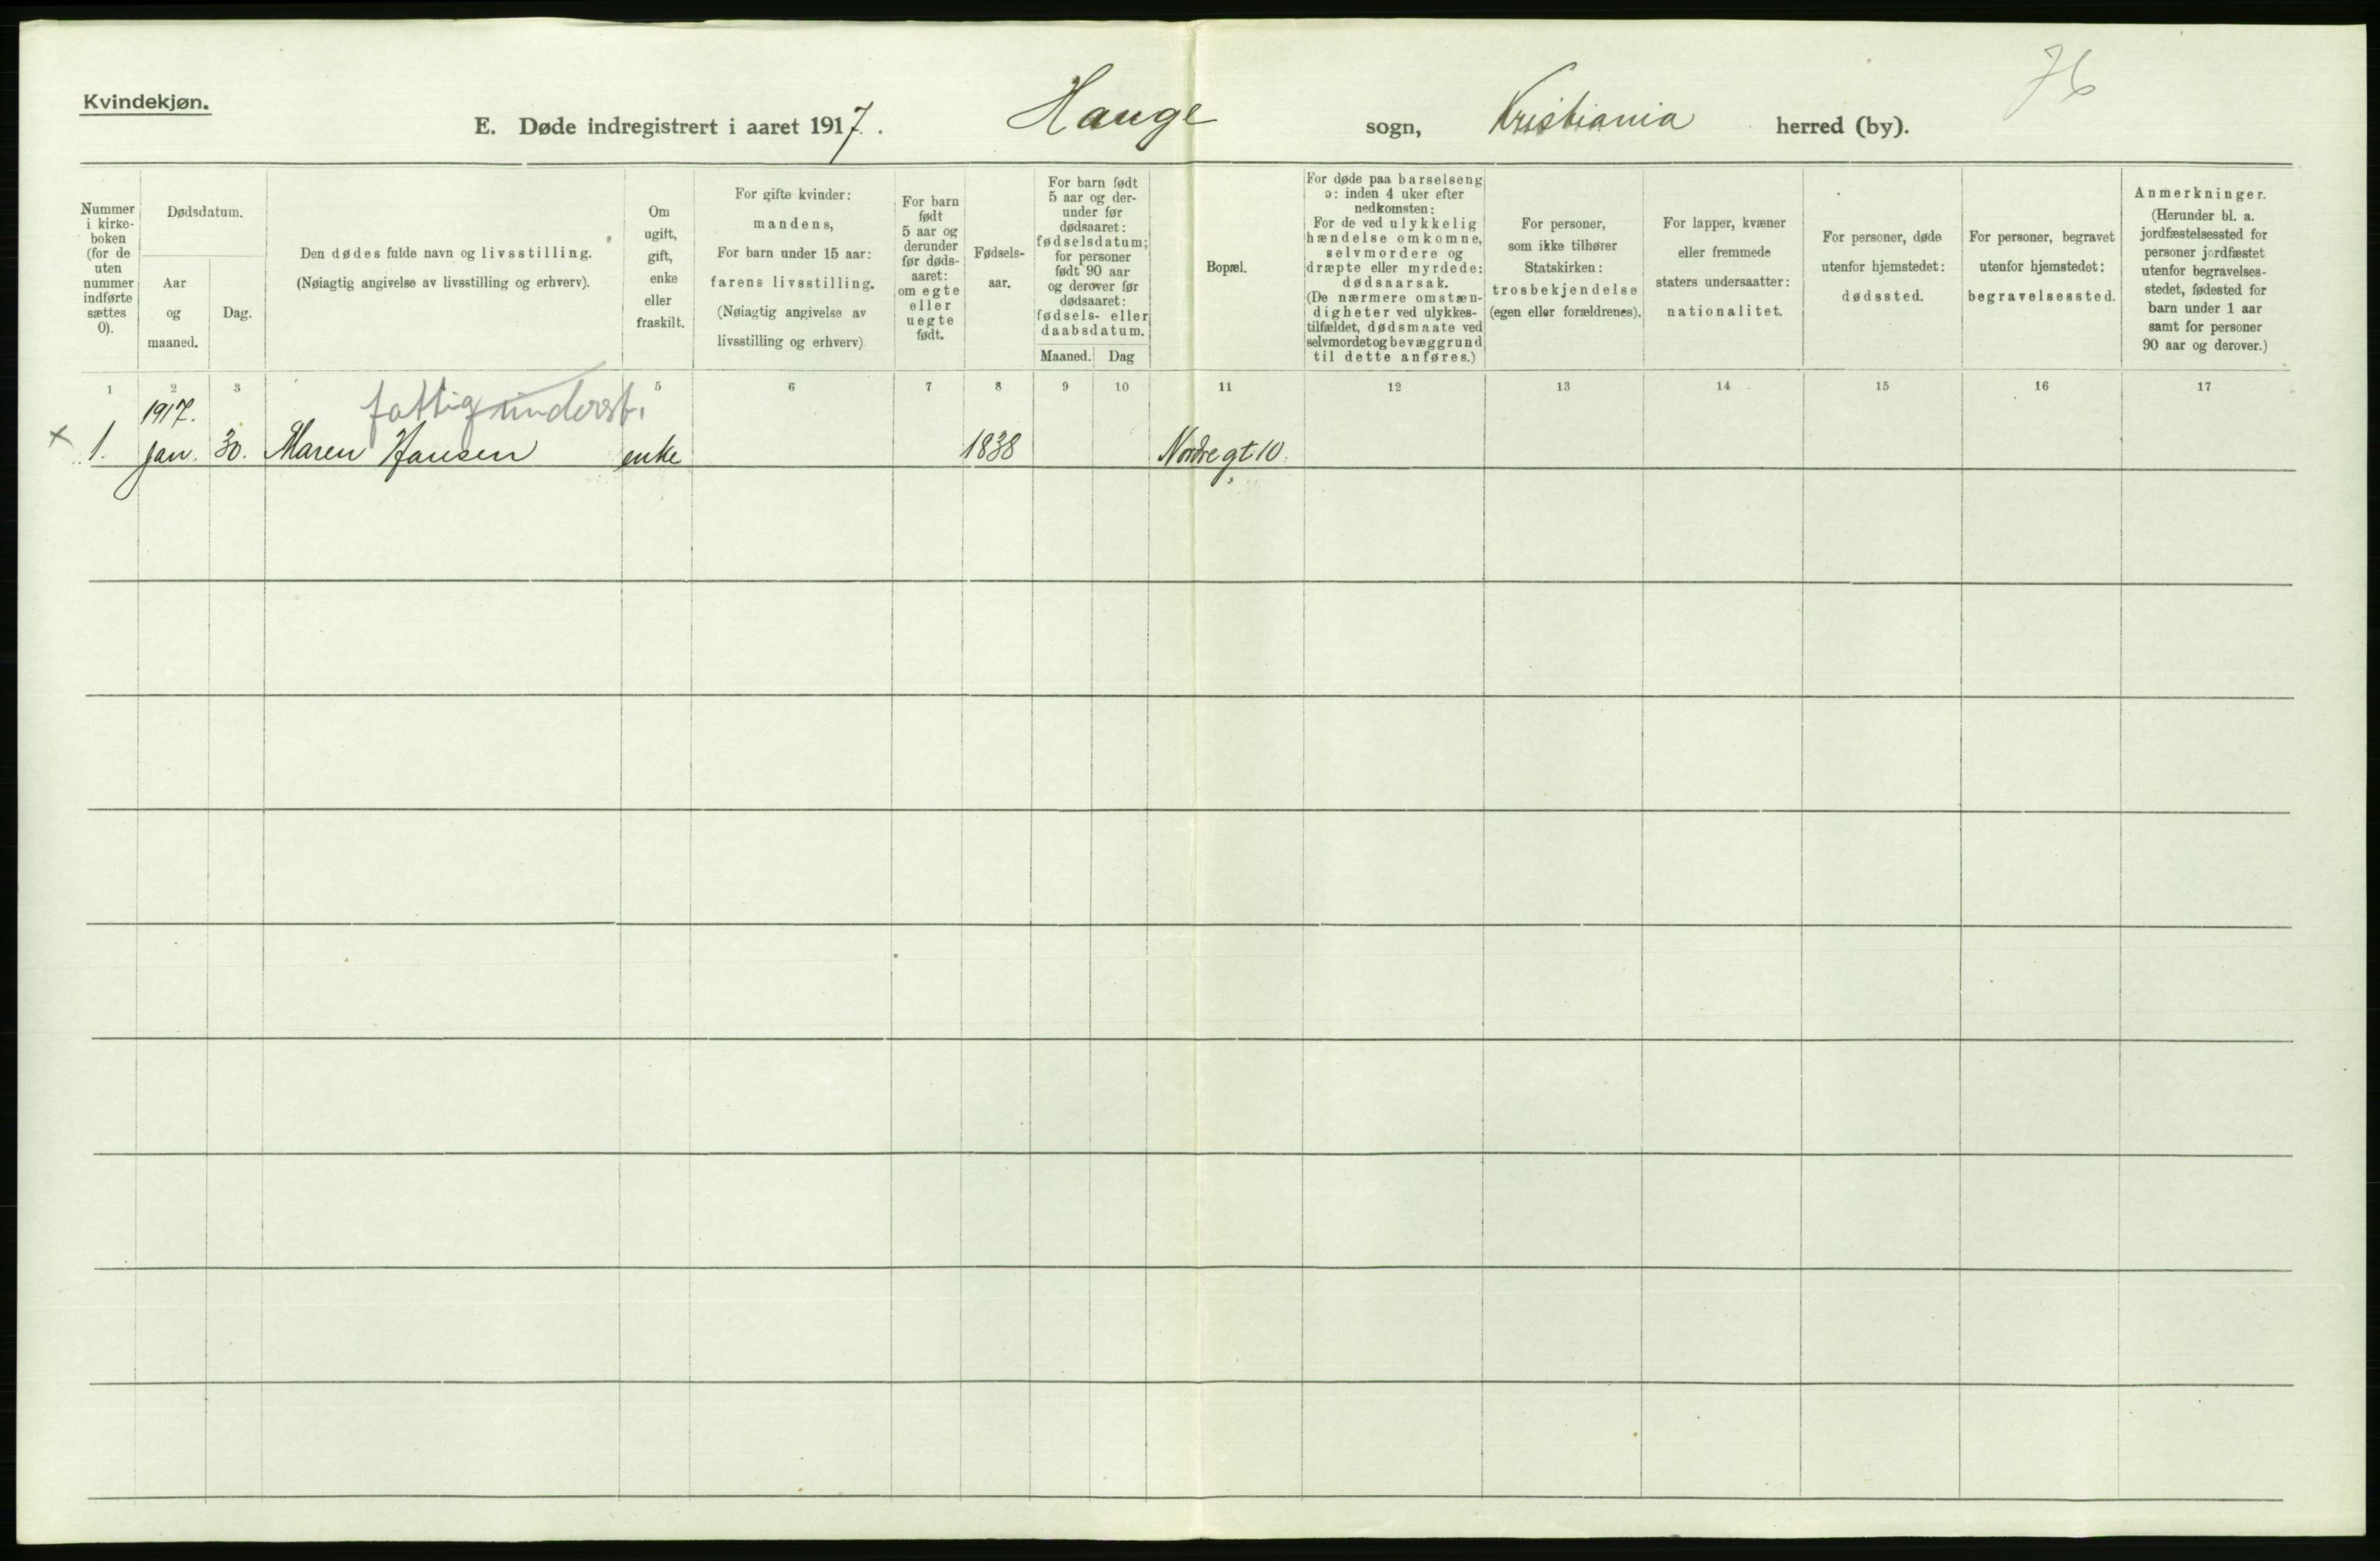 Kvindekjøn.
76
E. Døde indregistrert i aaret 1917. Hauge sogn, Kristiania herred (by).
Nummer
i kirke-
boken
(for de
uten
nummer
indførte
sættes
0).
Dødsdatum.
Aar
og
maaned.
Dag.
Den dødes fulde navn og livsstilling.
(Nøiagtig angivelse av livsstilling og erhverv).
Om
ugift,
gift,
enke
eller
fraskilt.
For gifte kvinder:
mandens,
For barn under 15 aar:
farens livsstilling.
(Nøiagtig angivelse av
livsstilling og erhverv)
For barn
født
5 aar og
derunder
før døds-
aaret:
om egte
eller
uegte
født.
Fødsels-
aar.
For barn født
5 aar og der-
under før
dødsaaret:
fødselsdatum;
for personer
født 90 aar
og derover før
dødsaaret:
fødsels- eller
daabsdatum.
Maaned. Dag
Bopæl.
For døde paa barselseng
ɔ: inden 4 uker efter
nedkomsten:
For de ved ulykkelig
hændelse omkomne,
selvmordere og
dræpte eller myrdede:
dødsaarsak.
(De nærmere omstæn-
digheter ved ulykkes-
tilfældet, dødsmaate ved
selvmordet og bevæggrund
til dette anføres.)
For personer,
som ikke tilhører
Statskirken:
trosbekjendelse
(egen eller forældrenes).
For lapper, kvæner
eller fremmede
staters undersaatter:
nationalitet.
For personer, døde
utenfor hjemstedet:
dødssted.
For personer, begravet
utenfor hjemstedet:
begravelsessted.
Anmerkninger.
(Herunder bl. a.
jordfæstelsessted for
personer jordfæstet
utenfor begravelses-
stedet, fødested for
barn under 1 aar
samt for personer
90 aar og derover.)
1 2 3 5 6 7 8 9 10 11 12 13 14 15 16 17
1917. fattigunderst.
x 1. Jan. 30. Maren Hansen enke 1838 Nordregt 10.